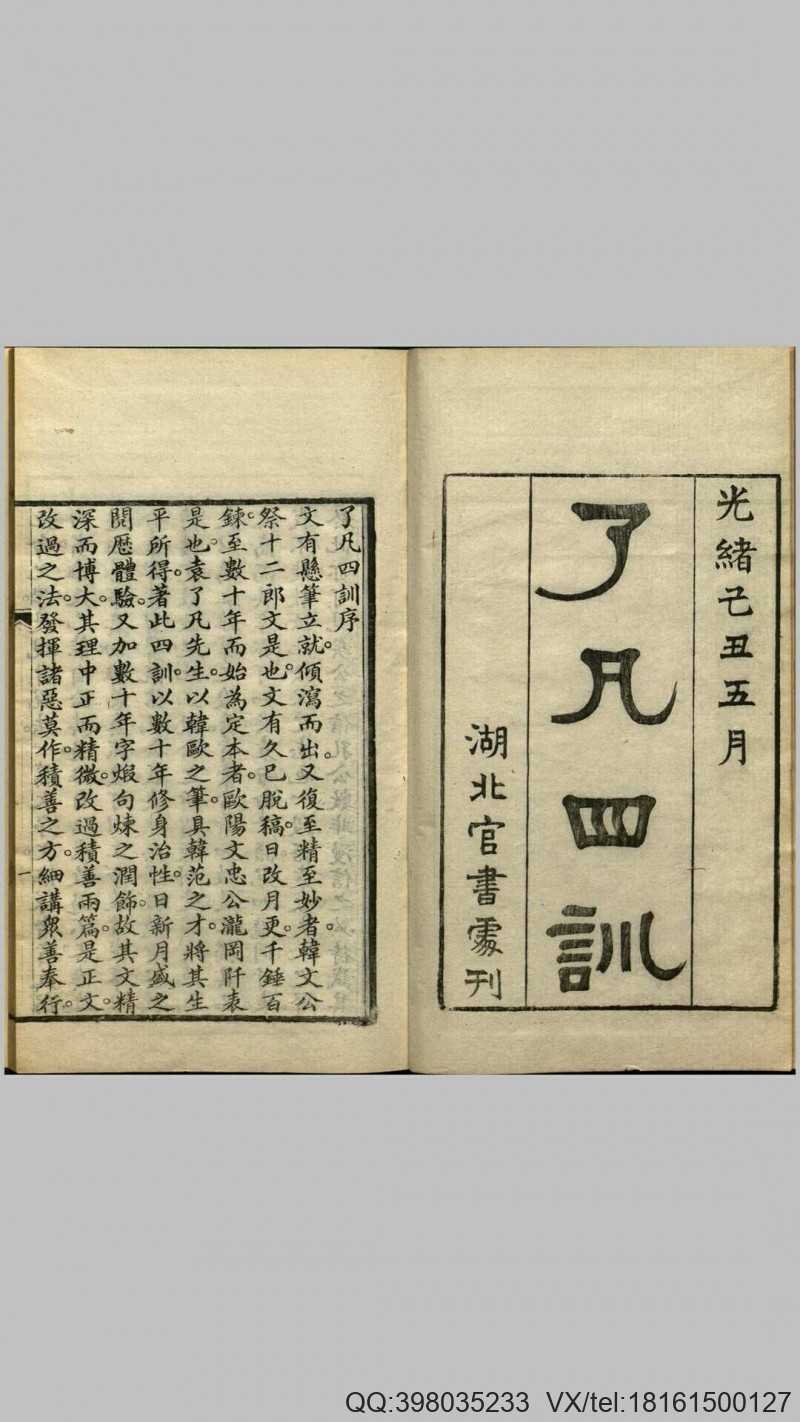 光緒己丑五月
了凡四訓
湖北官書處刊
了凡四訓序
文有懸筆立就。傾瀉而出。又復至精至妙者。韓文公
祭十二郎文是也。文有久已脫稿。日改月更。千錘百
鍊。至數十年而始為定本者。歐陽文忠公瀧岡阡表
是也。袁了凡先生。以韓歐之筆。具韓范之才。將其生
平所得。著此四訓。以數十年修身治性。日新月盛之
閱歷體驗。又加數十年字煅句煉之潤飾。故其文精
深而博大。其理中正而精微。改過積善兩篇。是正文。
改過之法。發揮諸惡莫作。積善之方。細講眾善奉行。
一
QQ:398035233 VX/tel:18161500127